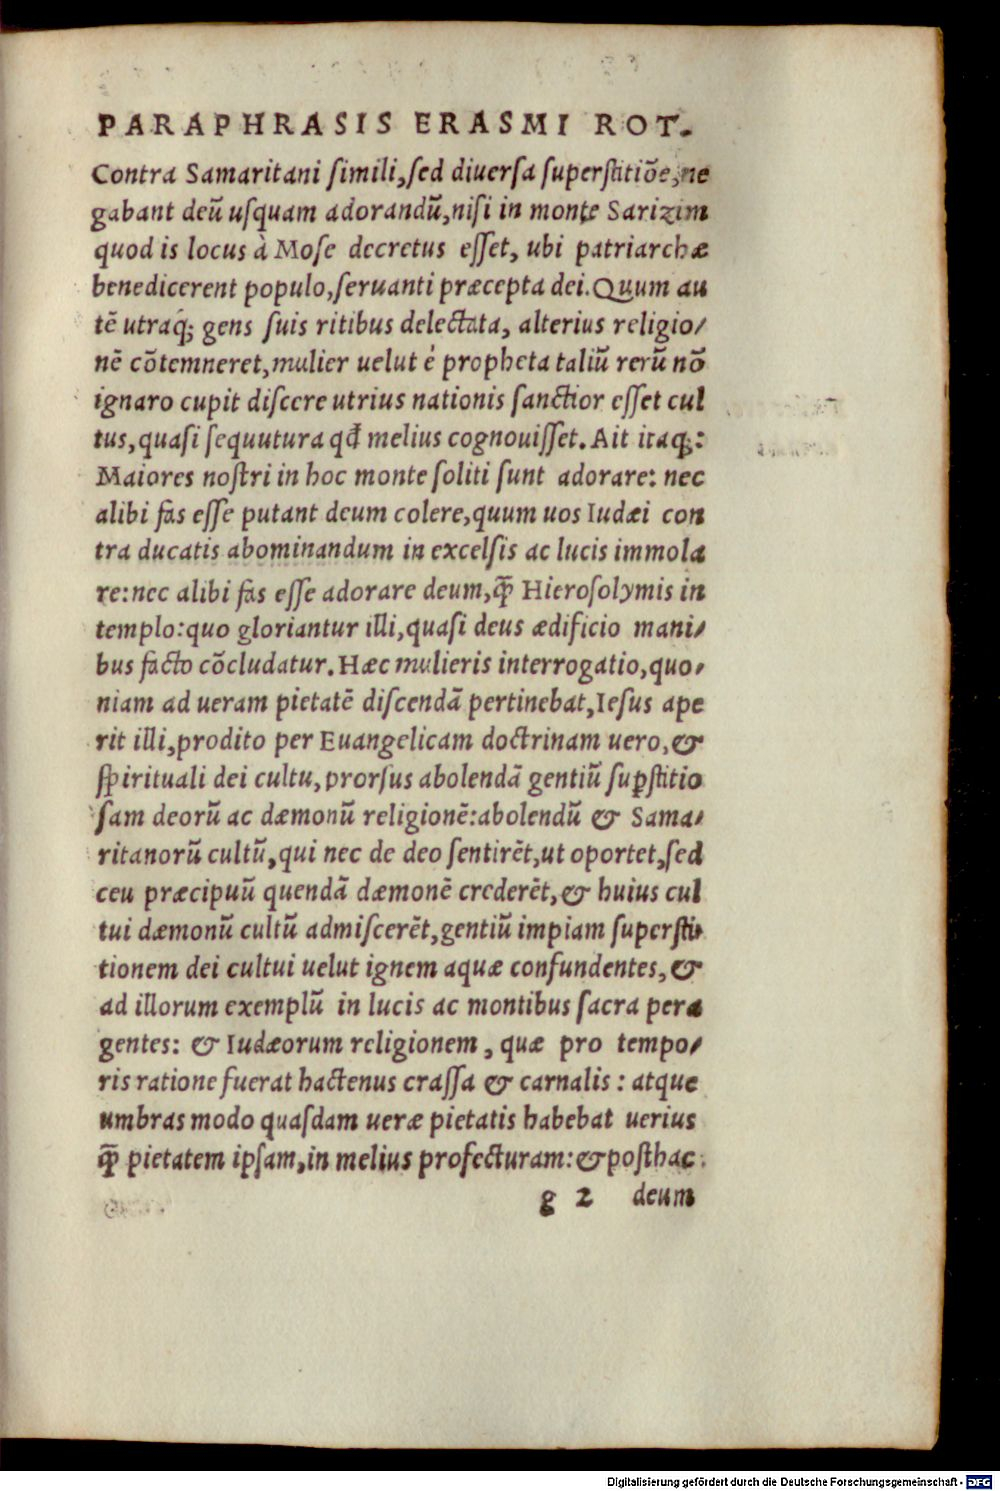 PARAPHRASIS ERASMI ROT.
Contra Samaritani simili, sed diuersa superstitiōe, ne
gabant deū usquam adorandū, nisi in monte Sarizim
quod is locus à Mose decretus esset, ubi patriarchæ
benedicerent populo, seruanti præcepta dei. Quum au
tē utraq; gens suis ritibus delectata, alterius religio/
nē cōtemneret, mulier uelut è propheta taliū rerū nō
ignaro cupit discere utrius nationis sanctior esset cul
tus, quasi sequutura qđ melius cognouisset. Ait itaq;:
Maiores nostri in hoc monte soliti sunt adorare: nec
alibi fas esse putant deum colere, quum uos Iudæi con
tra ducatis abominandum in excelsis ac lucis immola
re: nec alibi fas esse adorare deum, q̄ Hierosolymis in
templo: quo gloriantur illi, quasi deus ædificio mani/
bus facto cōcludatur. Hæc mulieris interrogatio, quo/
niam ad ueram pietatē discendā pertinebat, Iesus ape
rit illi, prodito per Euangelicam doctrinam uero, &
spirituali dei cultu, prorsus abolendā gentiū suꝑstitio
sam deorū ac dæmonū religionē: abolendū & Sama/
ritanorū cultū, qui nec de deo sentirēt, ut oportet, sed
ceu præcipuū quendā dæmonē crederēt, & huius cul
tui dæmonū cultū admiscerēt, gentiū impiam supersti/
tionem dei cultui uelut ignem aquæ confundentes, &
ad illorum exemplū in lucis ac montibus sacra pera
gentes: & Iudæorum religionem, quæ pro tempo/
ris ratione fuerat hactenus crassa & carnalis: atque
umbras modo quasdam ueræ pietatis habebat uerius
q̄ pietatem ipsam, in melius profecturam: & posthac
g 2 deum
Digitalisierung gefördert durch die Deutsche Forschungsgemeinschaft - DFG